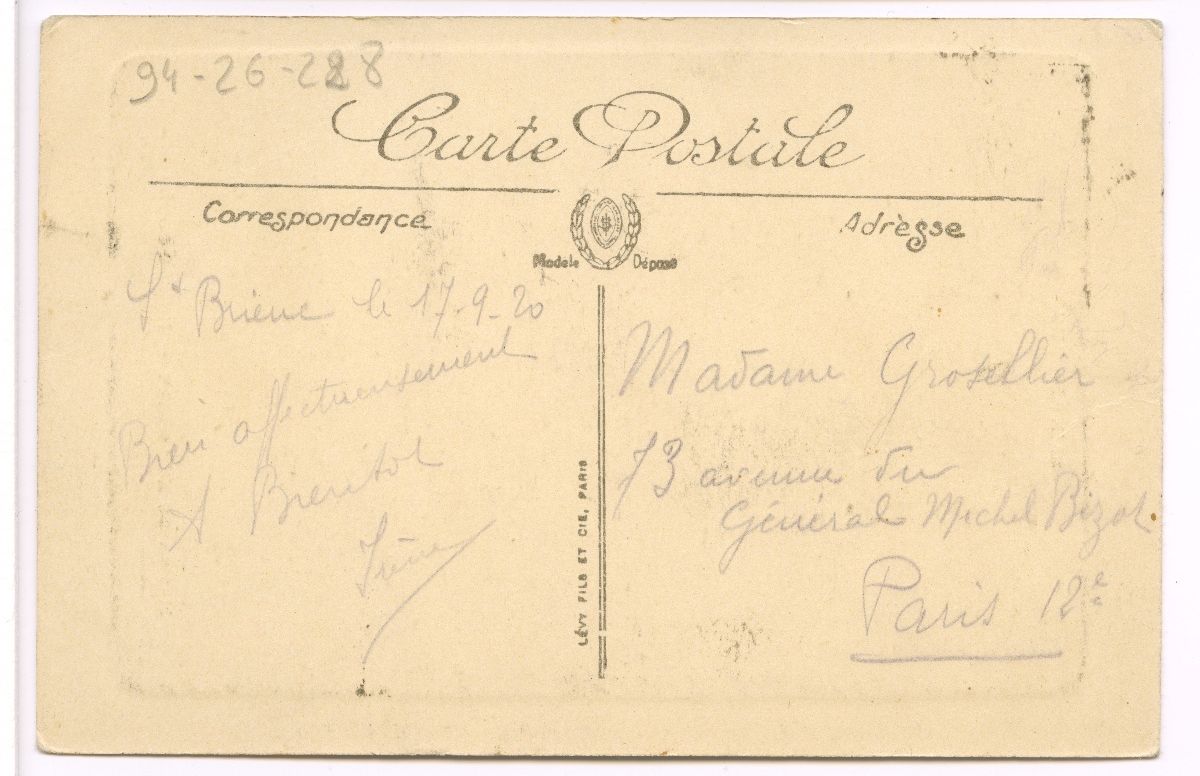 94-26-228
Carte Postale
Correspondance
Adresse
Modèle Déposé
St Brieuc le 17-9-20
Bien affectueusement
A Bientot
Irène
LÉVY FILS ET CIE, PARIS
Madame Grosellier
73 avenue du
Général Michel Bizot
Paris 12e